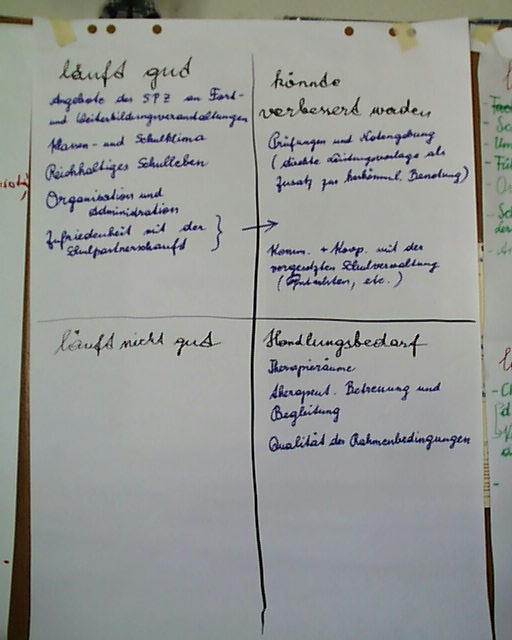 läuft gut
Angebote des SPZ an Fort-
und Weiterbildungsveranstaltungen
Klassen- und Schulklima
Reichhaltiges Schulleben
Organisation und
Administration
Zufriedenheit mit der
Schulpartnerschaft
könnte
verbessert werden
Prüfungen und Notengebung
(direkte Leistungsvorlage als
Zusatz zur herkömml. Benotung)
Komm. + Koop. mit der
vorgesetzten Schulverwaltung
(Gutachten, etc.)
läuft nicht gut
Handlungsbedarf
Therapieräume
therapeut. Betreuung und
Begleitung
Qualität der Rahmenbedingungen